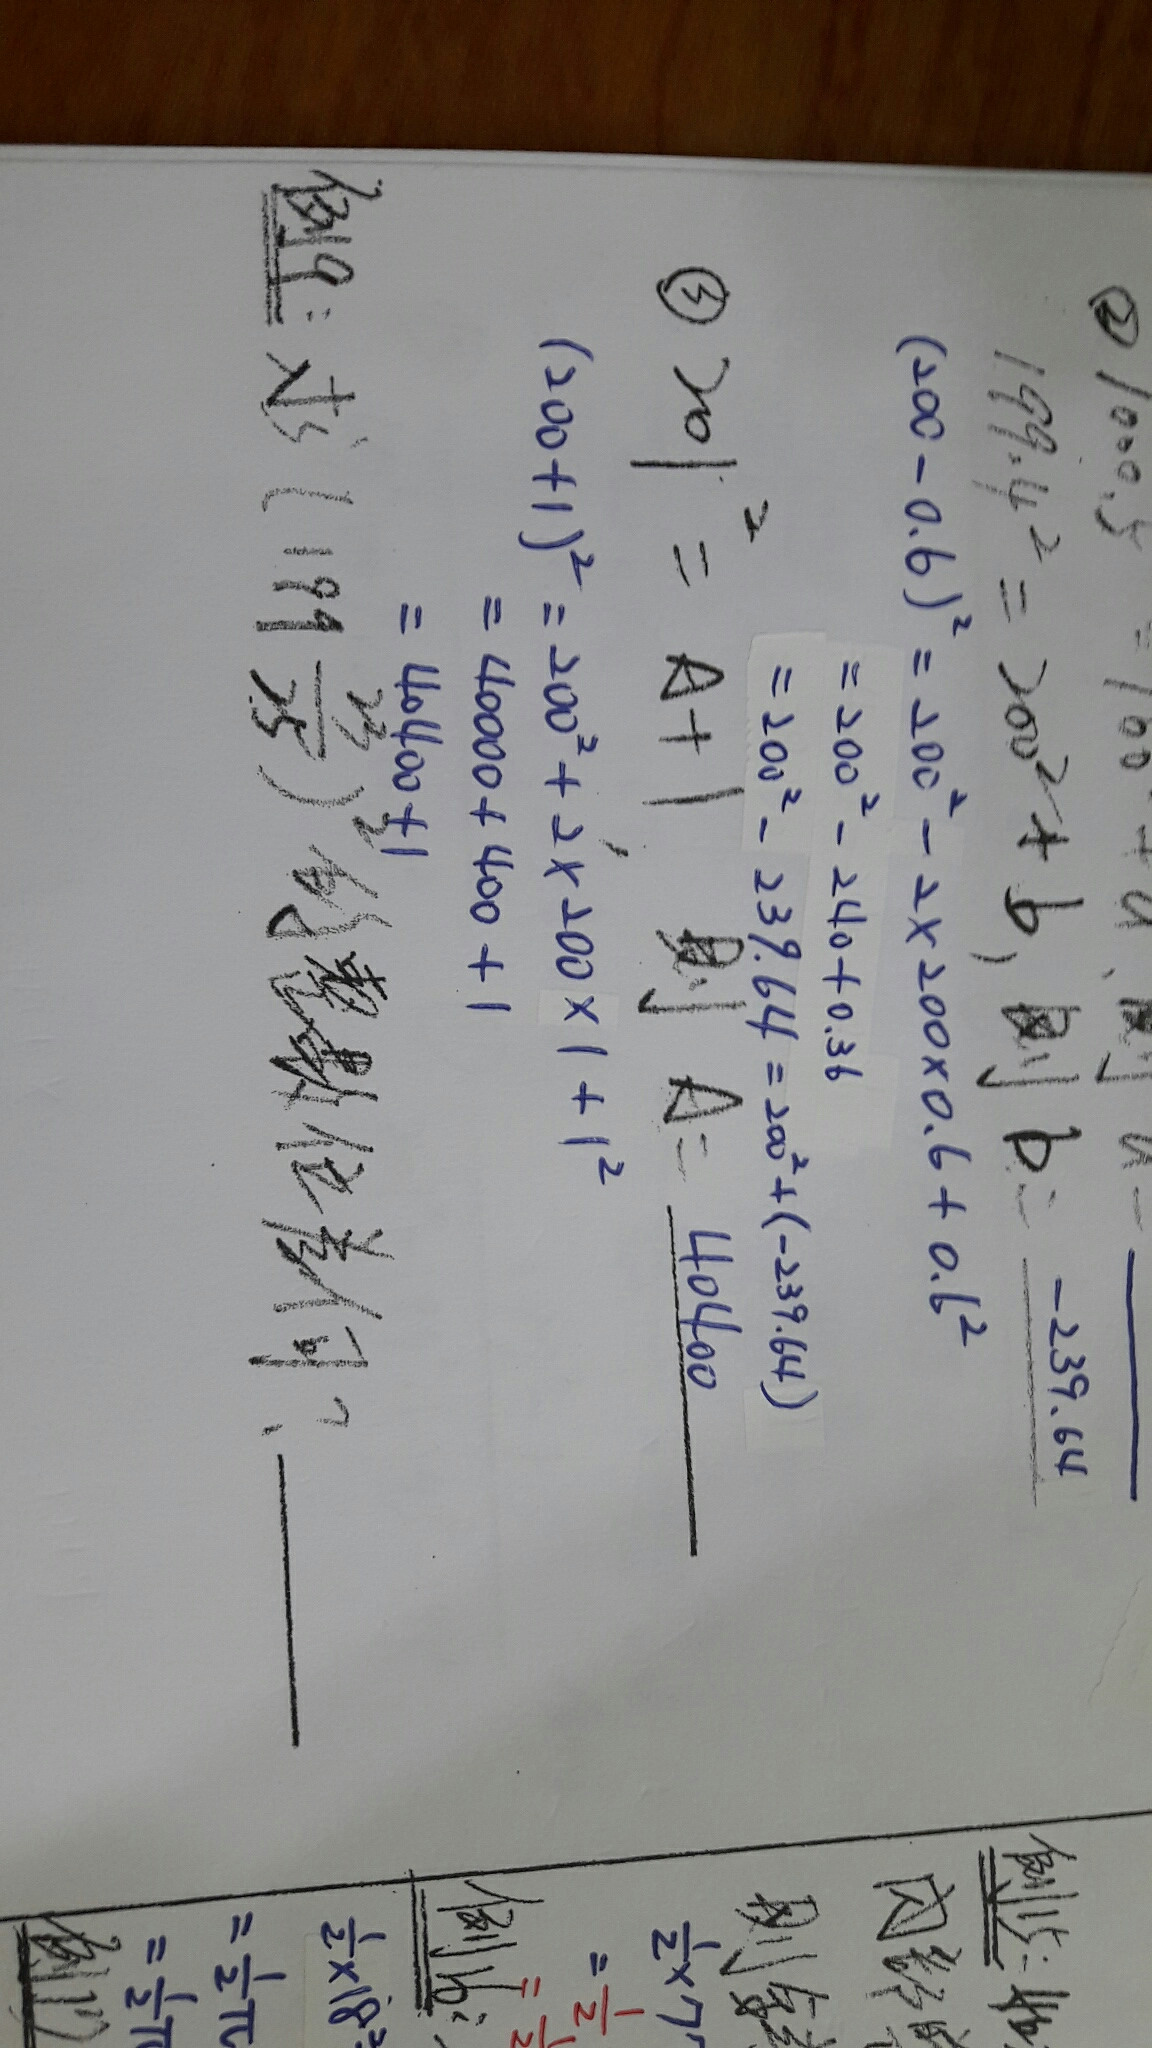 ② 1000.5
199.4² = 200² + b, 則 b = -239.64
(200-0.6)² = 200² - 2×200×0.6 + 0.6²
= 200² - 240 + 0.36
= 200² - 239.64 = 200² + (-239.64)
③ 201² = A+1, 則 A = 40400
(200+1)² = 200² + 2×200×1 + 1²
= 40000 + 400 + 1
= 40400+1
例9: 求(199 23/25)² 的整數部份為何?
例15:
內
則
1/2×7
= 1/2
例16:
1/2×18²
= 1/2π
= 1/2π
例17